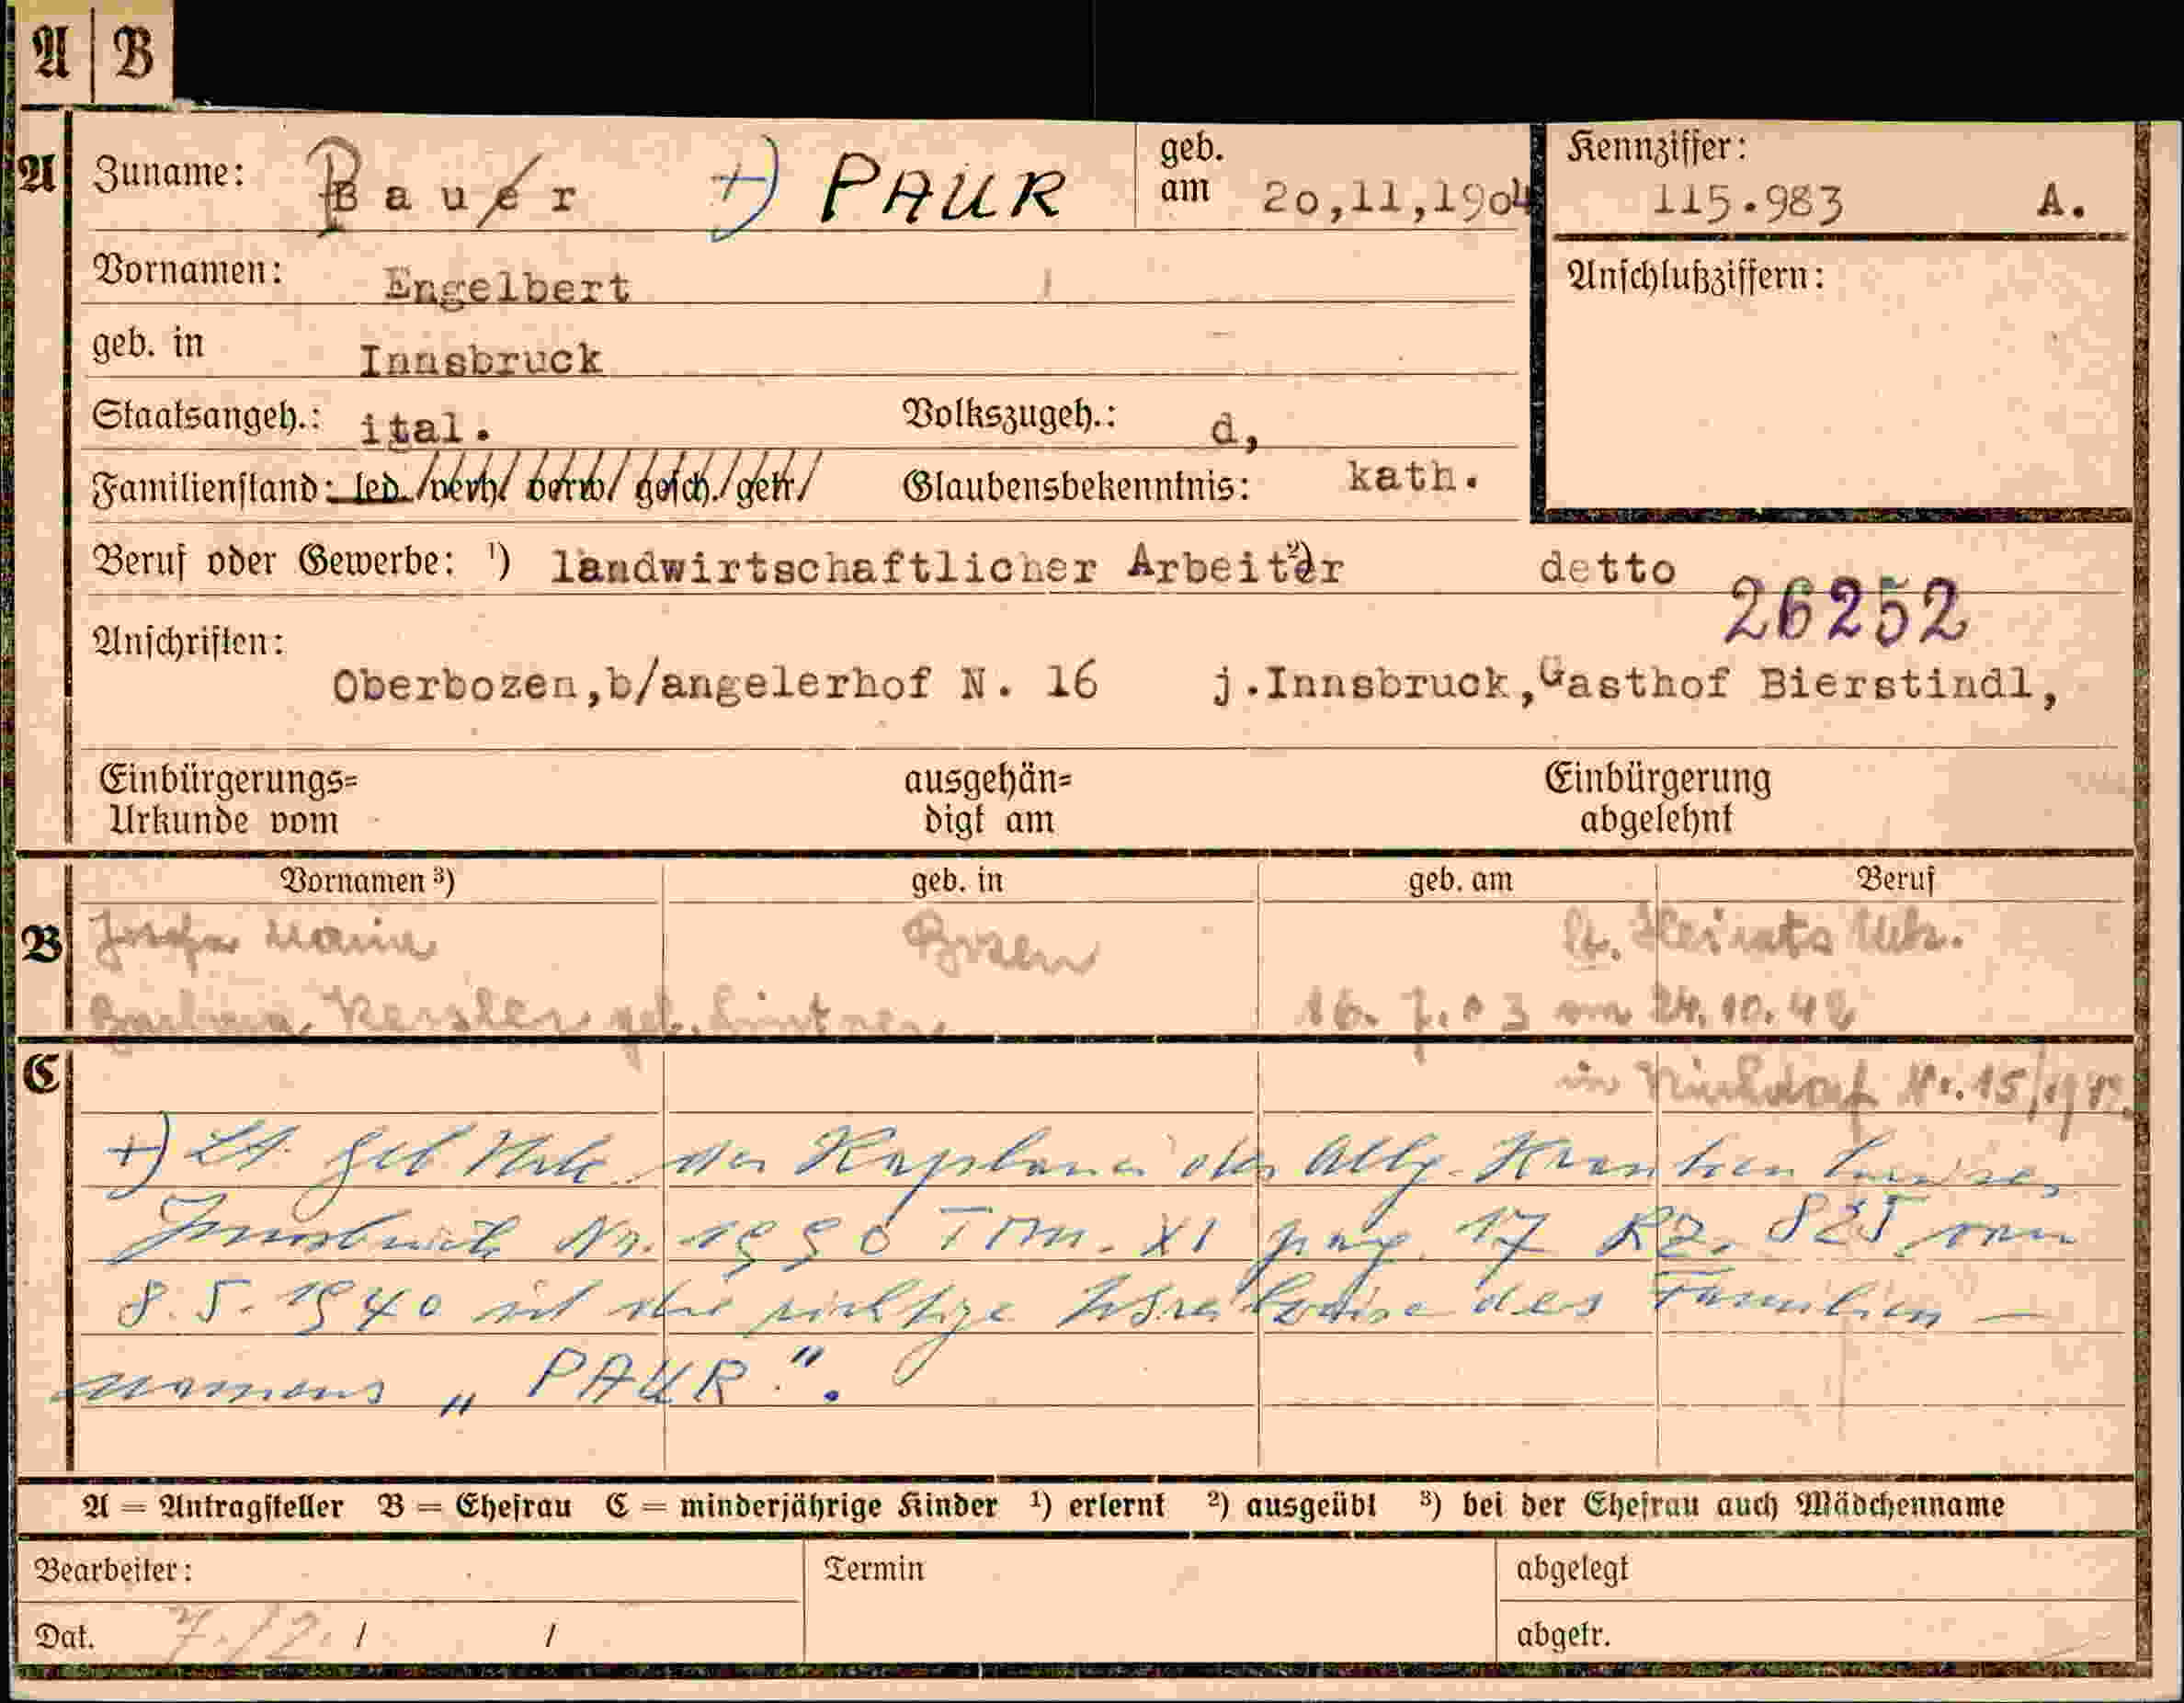 A | B
A Zuname: Bauer +) PAUR geb. am 20,11,1904 Kennziffer: 115.983 A.
Vornamen: Engelbert Anschlußziffern:
geb. in Innsbruck
Staatsangeh.: ital. Volkszugeh.: d,
Familienstand: led./verh/ verw/ gesch./getr/ Glaubensbekenntnis: kath.
Beruf oder Gewerbe: ¹) landwirtschaftlicher Arbeiter ²) detto
26252
Anschriften:
Oberbozen,b/angelerhof N. 16 j.Innsbruck,Gasthof Bierstindl,
Einbürgerungs= ausgehän= Einbürgerung
Urkunde vom digt am abgelehnt
Vornamen ³) geb. in geb. am Beruf
B Josefa Maria Bozen lt. Heirats Urk.
Barbara Kessler geb. Lintner 16. 7. 03 am 24.10.42
C
in Nr. 15/
+) Lt. Geb Urk. der Kaplanei des Allg. Krankenhauses,
Innsbruck Nr. 1990 Tom. XI pag. 17 RZ. 825 vom
8.5.1940 ist die richtige Schreibweise des Familien-
namens „PAUR".
A = Antragsteller B = Ehefrau C = minderjährige Kinder ¹) erlernt ²) ausgeübt ³) bei der Ehefrau auch Mädchenname
Bearbeiter: Termin abgelegt
Dat. 7./2. / / abgetr.